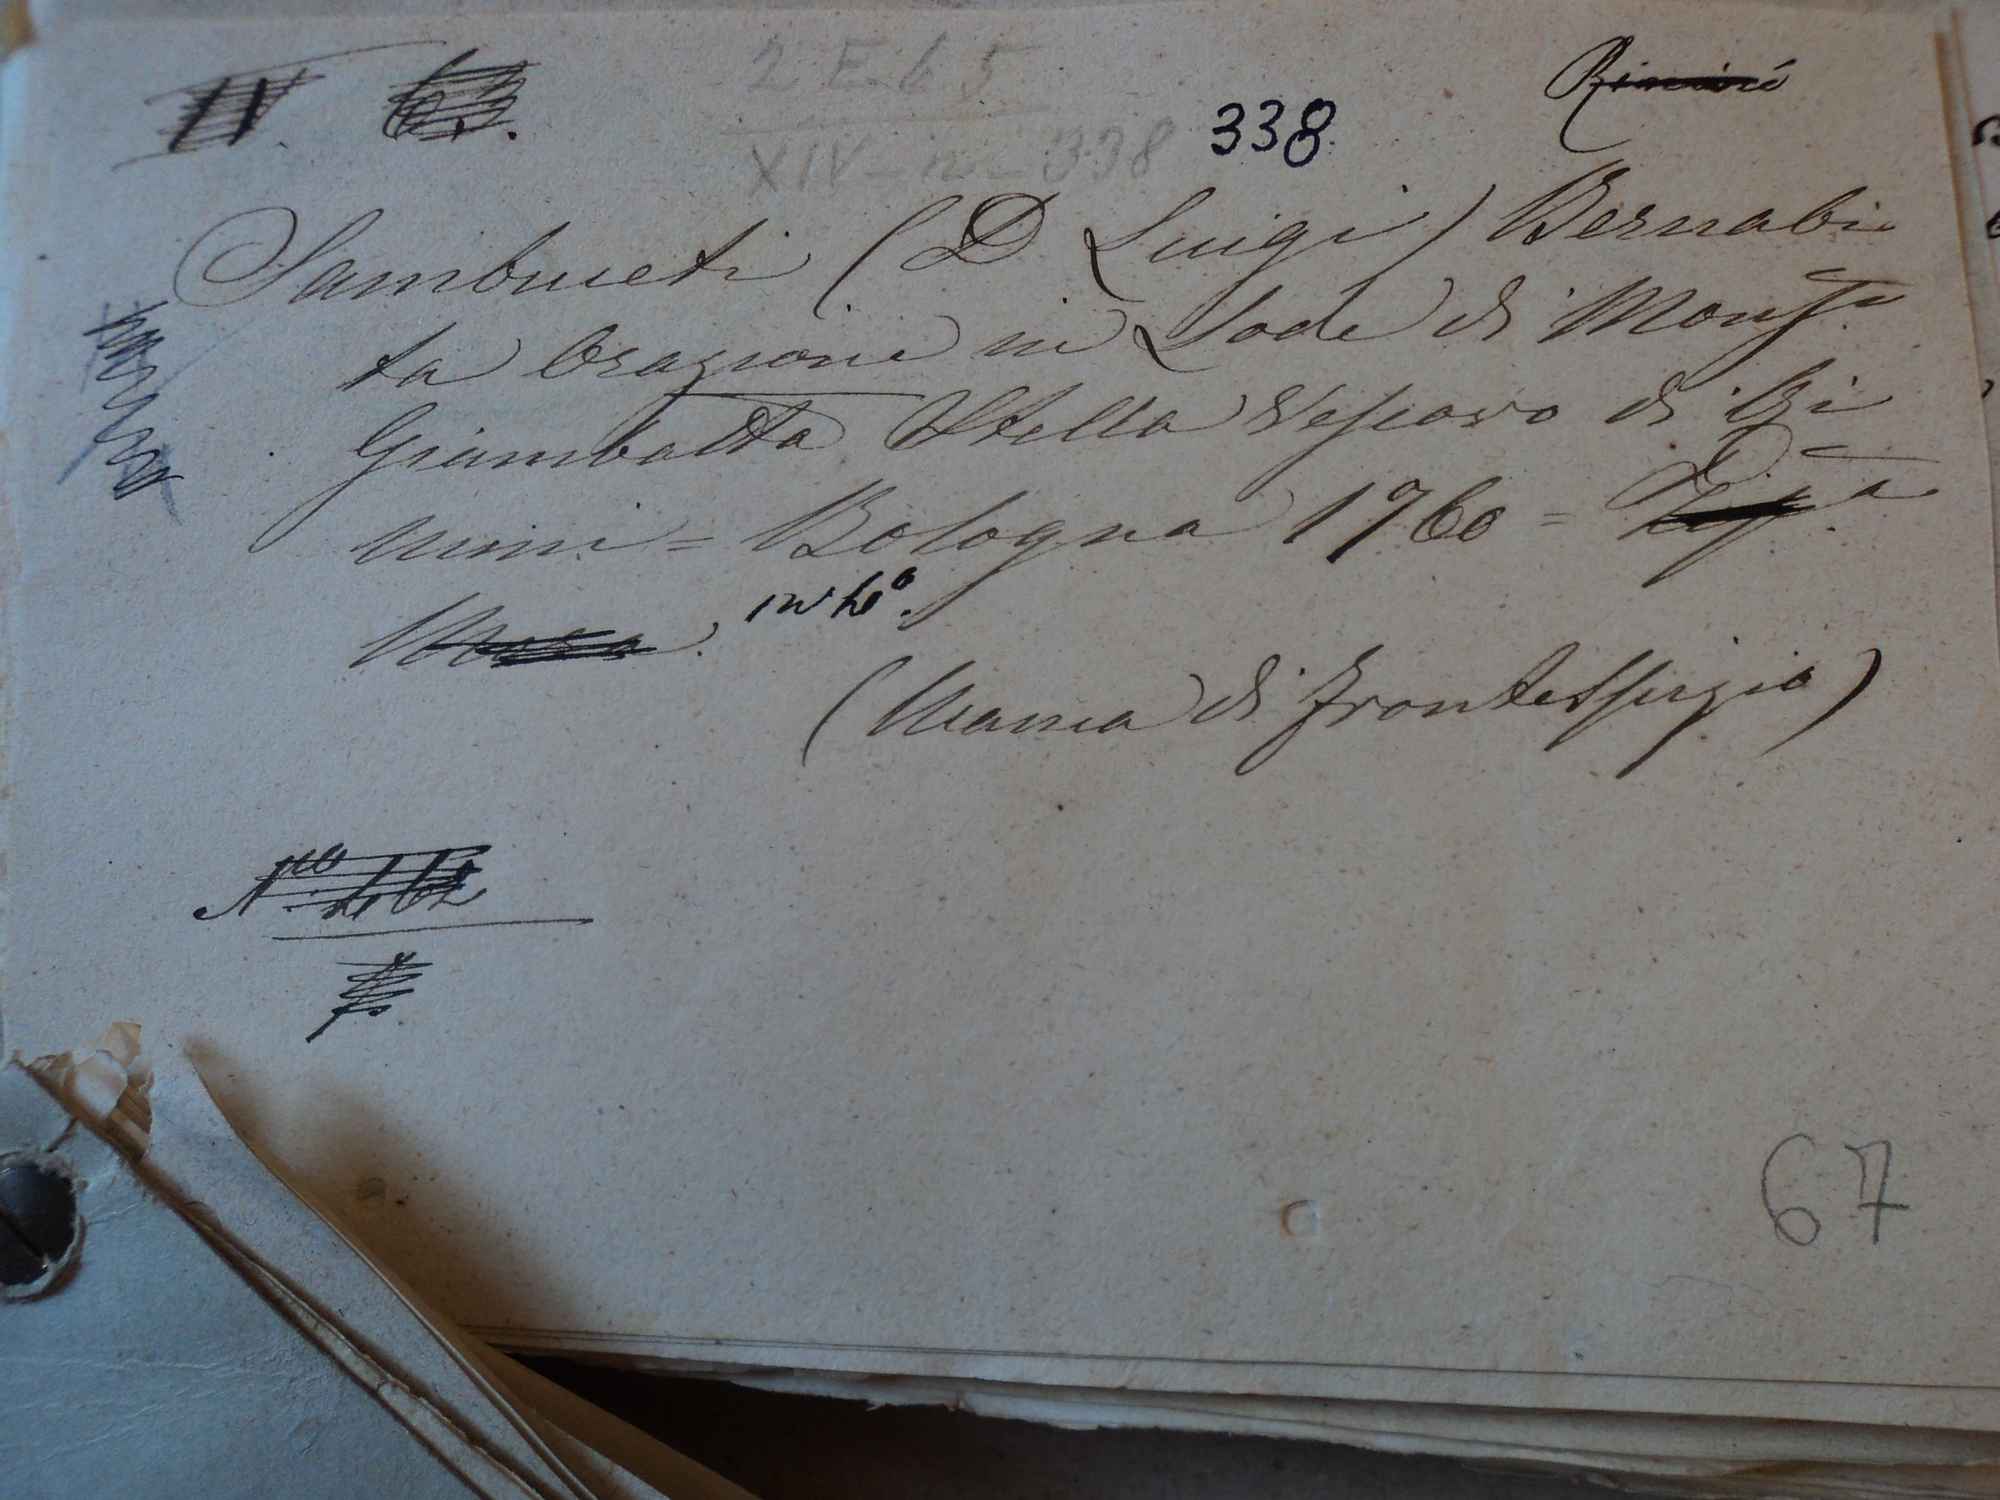 IV. 63.
2 E. 6 5
XIV - n - 338
338.
Rimini
Sambuceti (D Luigi) Bernabi
ta Orazione in Lode di Monsr
Giambatta Stella Vescovo di Ri
mini = Bologna 1760 =
in 4º.
(Manca di Frontespizio)
67